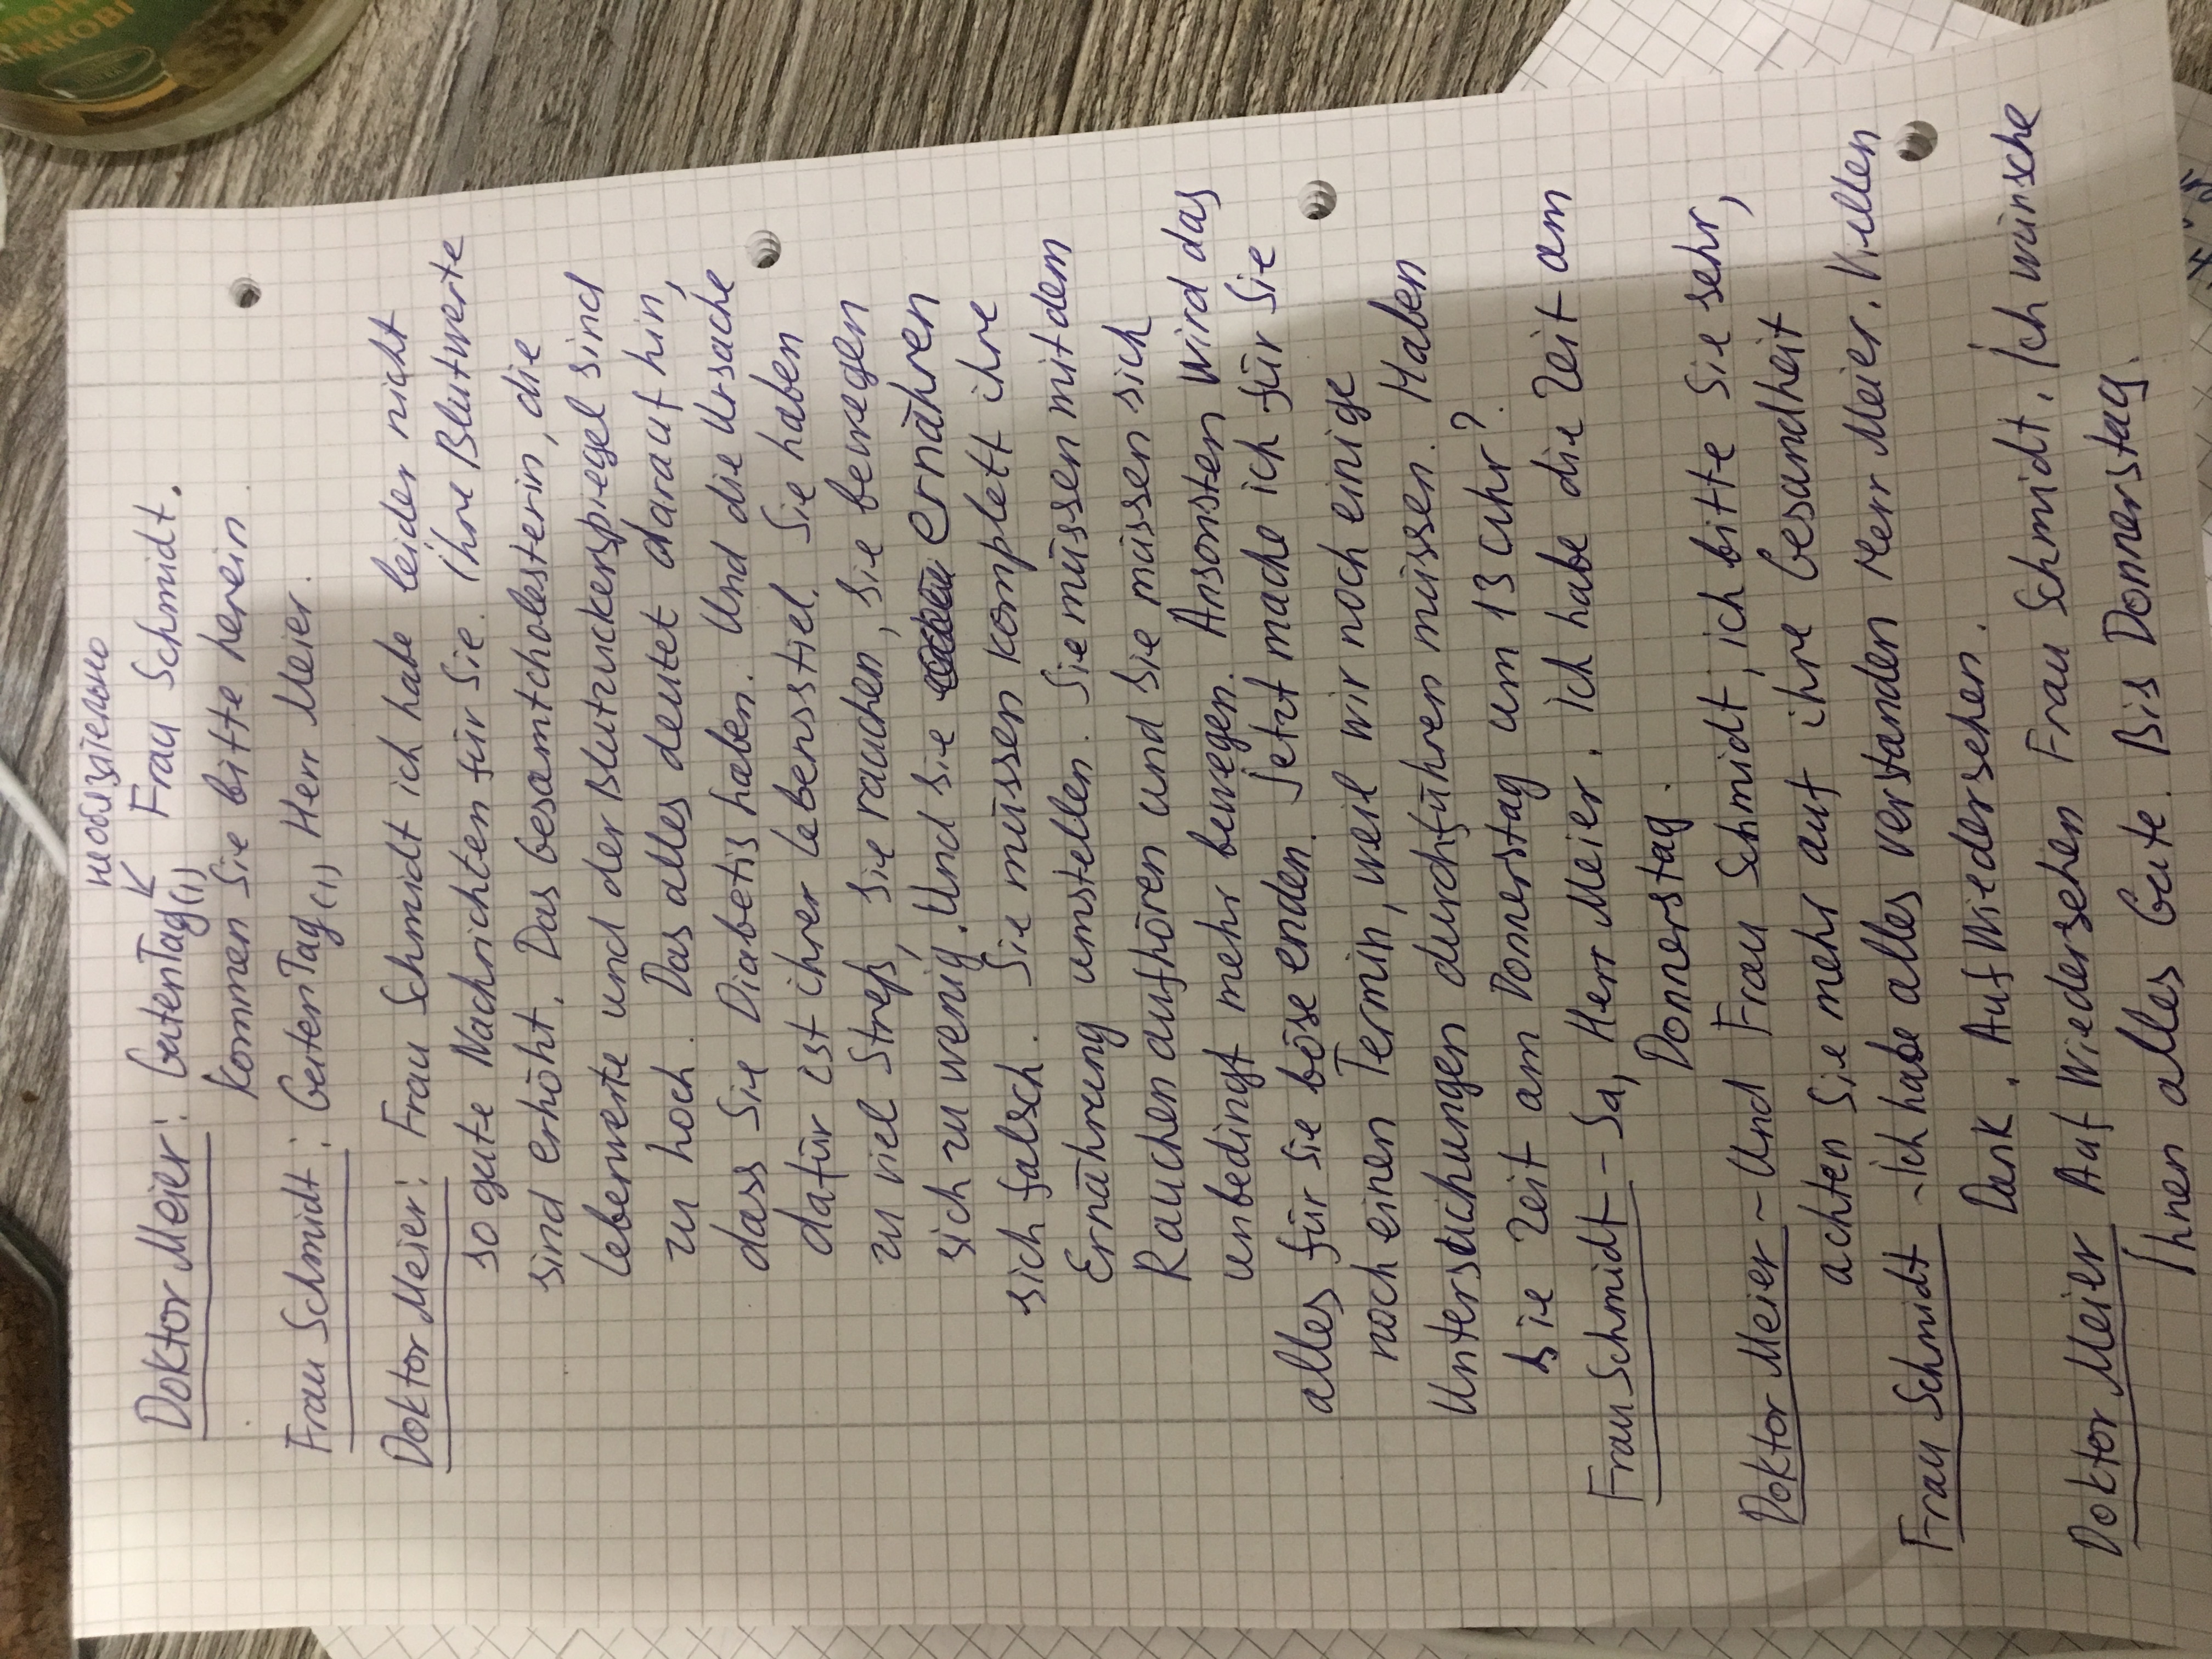 необязательно
Doktor Meier: GutenTag(,) Frau Schmidt.
Kommen Sie bitte herein
Frau Schmidt: GutenTag(,) Herr Meier.
Doktor Meier: Frau Schmidt ich habe leider nicht
so gute Nachrichten für Sie. Ihre Blutwerte
sind erhöht. Das Gesamtcholesterin, die
Leberwerte und der Blutzuckerspiegel sind
zu hoch. Das alles deutet darauf hin,
dass Sie Diabetis haben. Und die Ursache
dafür ist ihrer Lebensstiel. Sie haben
zu viel Streß, Sie rauchen, Sie bewegen
sich zu wenig. Und Sie ernähren
sich falsch. Sie müssen komplett ihre
Ernährung umstellen. Sie müssen mit dem
Rauchen aufhören und Sie müssen sich
unbedingt mehr bewegen. Ansonsten wird das
alles für Sie böse enden. Jetzt mache ich für Sie
noch einen Termin, weil wir noch einige
Untersuchungen durchführen müssen. Haben
Sie Zeit am Donnerstag um 13 Uhr?
Frau Schmidt - Ja, Herr Meier. Ich habe die Zeit am
Donnerstag.
Doktor Meier - Und Frau Schmidt, ich bitte Sie sehr,
achten Sie mehr auf ihre Gesandheit
Frau Schmidt - Ich habe alles verstanden Herr Meier. Viellen
Dank. Auf Wiedersehen.
Doktor Meier Auf Wiedersehen Frau Schmidt. Ich wünsche
Ihnen alles Gute. Bis Donnerstag.